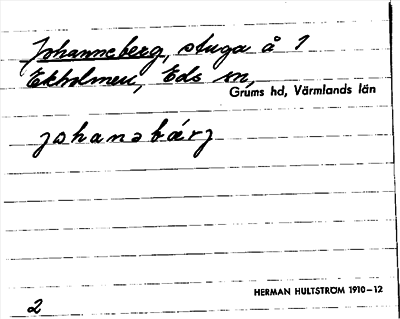 Johanneberg, stuga å 1
Ekholmen, Eds sn,
Grums hd, Värmlands län
johanəbárj
HERMAN HULTSTRÖM 1910–12
2